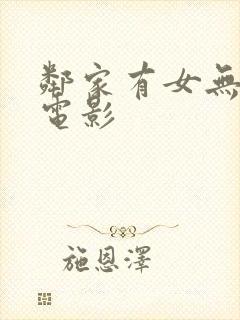 鄰家有女無
電影
施恩澤